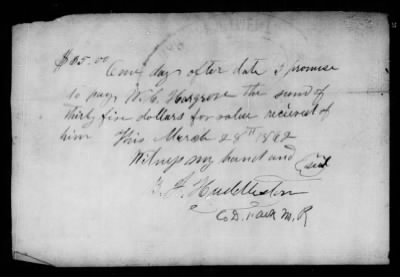 One day after date I promise
to pay W. C. Hargrove the sum of
thirty five dollars for value recieved of
him This March 28th 1882
Witness my hand and seal
Huddleston